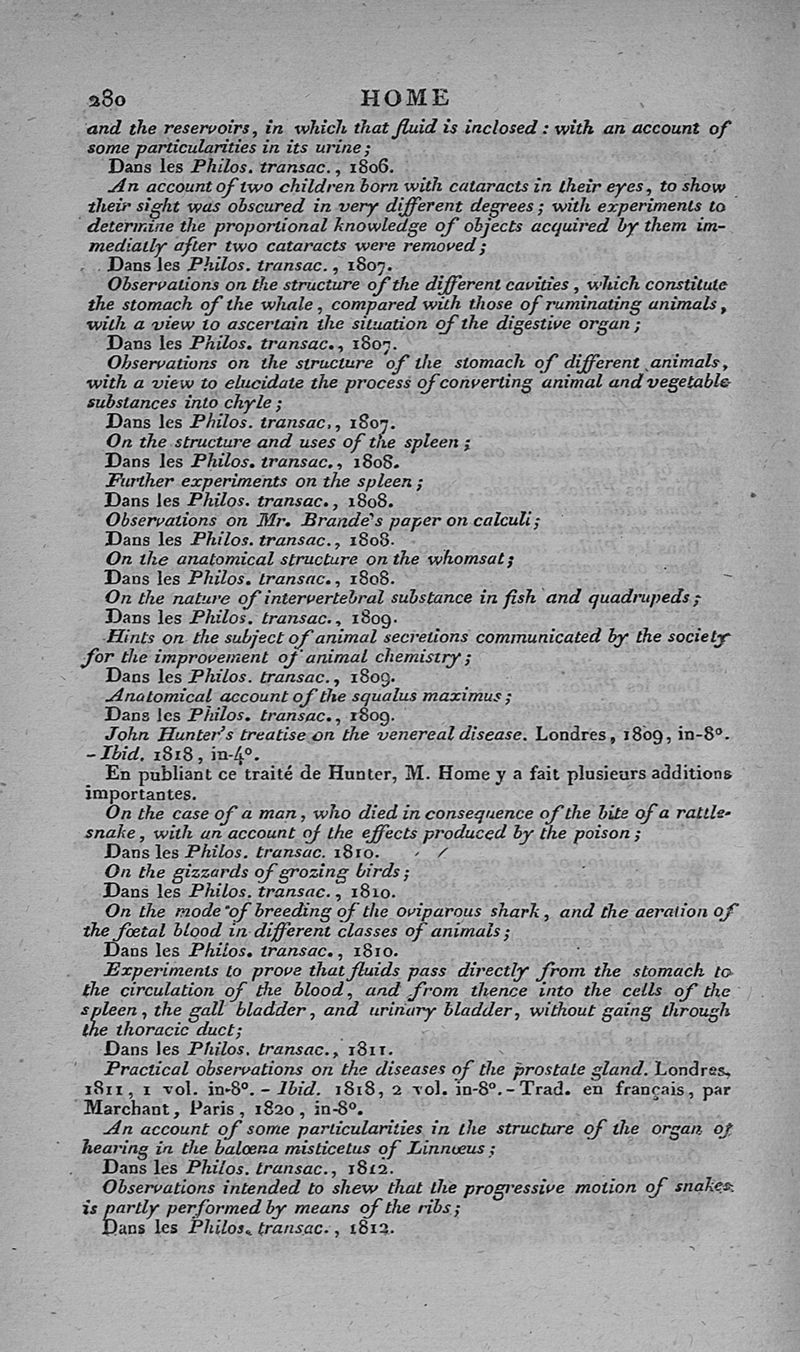 280 HOME
and the reservoirs, in which that fluid is inclosed : with an account of
some particularities in its urine ;
Dans les Philos. transac., 1806.
An account of two children born with cataracts in their eyes, to show
their sight was obscured in very different degrees ; with experiments to
determine the proportional knowledge of objects acquired by them im-
mediatly after two cataracts were removed ;
Dans les Philos. transac., 1807.
Observations on the structure of the different cavities, which constitute
the stomach of the whale, compared with those of ruminating animals,
with a view to ascertain the situation of the digestive organ ;
Dans les Philos. transac., 1807.
Observations on the structure of the stomach of different animals,
with a view to elucidate the process of converting animal and vegetable
substances into chyle ;
Dans les Philos. transac., 1807.
On the structure and uses of the spleen ;
Dans les Philos. transac., 1808.
Further experiments on the spleen ;
Dans les Philos. transac., 1808.
Observations on Mr. Brande's paper on calculi ;
Dans les Philos. transac., 1808.
On the anatomical structure on the whomsat ;
Dans les Philos. transac., 1808.
On the nature of intervertebral substance in fish and quadrupeds ;
Dans les Philos. transac., 1809.
Hints on the subject of animal secretions communicated by the society
for the improvement of animal chemistry ;
Dans les Philos. transac., 1809.
Anatomical account of the squalus maximus ;
Dans les Philos. transac., 1809.
John Hunter's treatise on the venereal disease. Londres, 1809, in-8°.
- Ibid. 1818, in-4°.
En publiant ce traité de Hunter, M. Home y a fait plusieurs additions
importantes.
On the case of a man, who died in consequence of the bite of a rattle-
snake, with an account of the effects produced by the poison ;
Dans les Philos. transac. 1810.
On the gizzards of grozing birds ;
Dans les Philos. transac., 1810.
On the mode of breeding of the oviparous shark, and the aeration of
the fœtal blood in different classes of animals ;
Dans les Philos. transac., 1810.
Experiments to prove that fluids pass directly from the stomach to
the circulation of the blood, and from thence into the cells of the
spleen, the gall bladder, and urinary bladder, without gaing through
the thoracic duct;
Dans les Philos. transac., 1811.
Practical observations on the diseases of the prostate gland. Londres,
1811, 1 vol. in-8°. - Ibid. 1818, 2 vol. in-8°. - Trad. en français, par
Marchant, Paris, 1820, in-8°.
An account of some particularities in the structure of the organ of
hearing in the balœna misticetus of Linnœus ;
Dans les Philos. transac., 1812.
Observations intended to shew that the progressive motion of snakes
is partly performed by means of the ribs ;
Dans les Philos. transac., 1812.